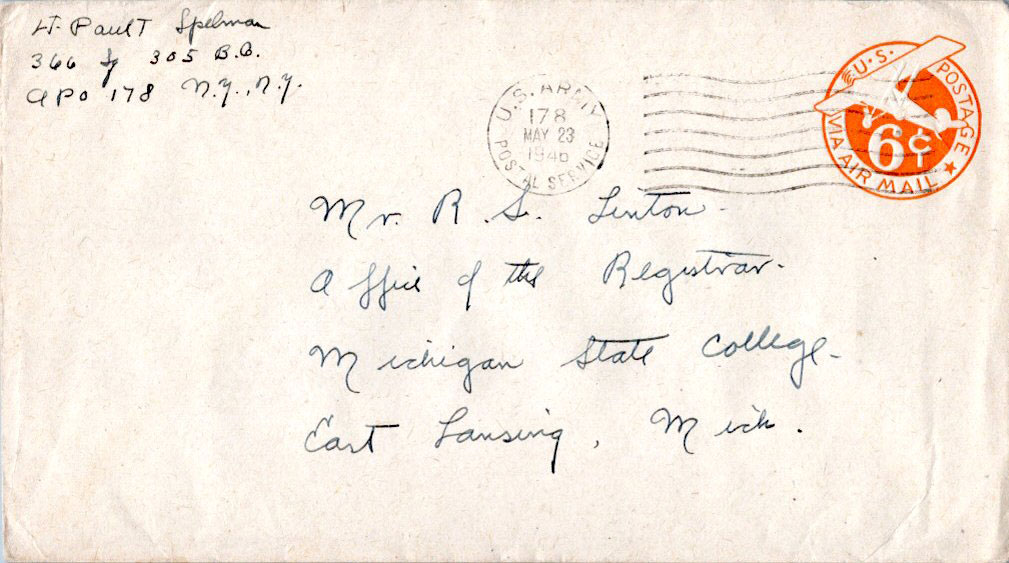 Lt. Paul T Spelman
366 Sq 305 B.G.
APO 178 N.Y., N.Y.
U.S. ARMY
178
MAY 23
1946
POSTAL SERVICE
U.S. POSTAGE
6¢
VIA AIR MAIL
Mr. R. S. Linton.
Office of the Registrar.
Michigan State College.
East Lansing, Mich.